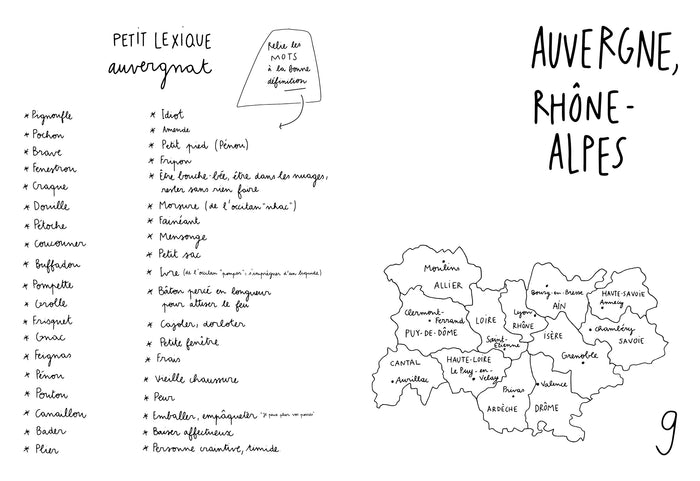 PETIT LEXIQUE
auvergnat
Relie les
MOTS
à la bonne
définition
* Pignoufle
* Pochon
* Brave
* Fenestrou
* Craque
* Douille
* Pétoche
* Coucouner
* Buffadou
* Pompette
* Grolle
* Frisquet
* Gnac
* Feignas
* Pénou
* Poutou
* Canaillou
* Bader
* Plier
* Idiot
* Amende
* Petit pied (Pénou)
* Fripon
* Être bouche-bée, être dans les nuages,
rester sans rien faire
* Morsure (de l'occitan "nhac")
* Fainéant
* Mensonge
* Petit sac
* Ivre (de l'occitan "pompar": s'imprégner d'un liquide)
* Bâton percé en longueur
pour attiser le feu
* Cajoler, dorloter
* Petite fenêtre
* Frais
* Vieille chaussure
* Peur
* Emballer, empâqueter
* Baiser affectueux
* Personne craintive, timide
AUVERGNE,
RHÔNE-
ALPES
Moulins
ALLIER
Clermont-
Ferrand
PUY-DE-DÔME
LOIRE
Saint-
Etienne
Lyon
RHÔNE
Bourg-en-Bresse
AIN
HAUTE-SAVOIE
Annecy
Chambéry
SAVOIE
ISÈRE
Grenoble
CANTAL
Aurillac
HAUTE-LOIRE
Le Puy-en-
Velay
Privas
ARDÈCHE
Valence
DRÔME
9